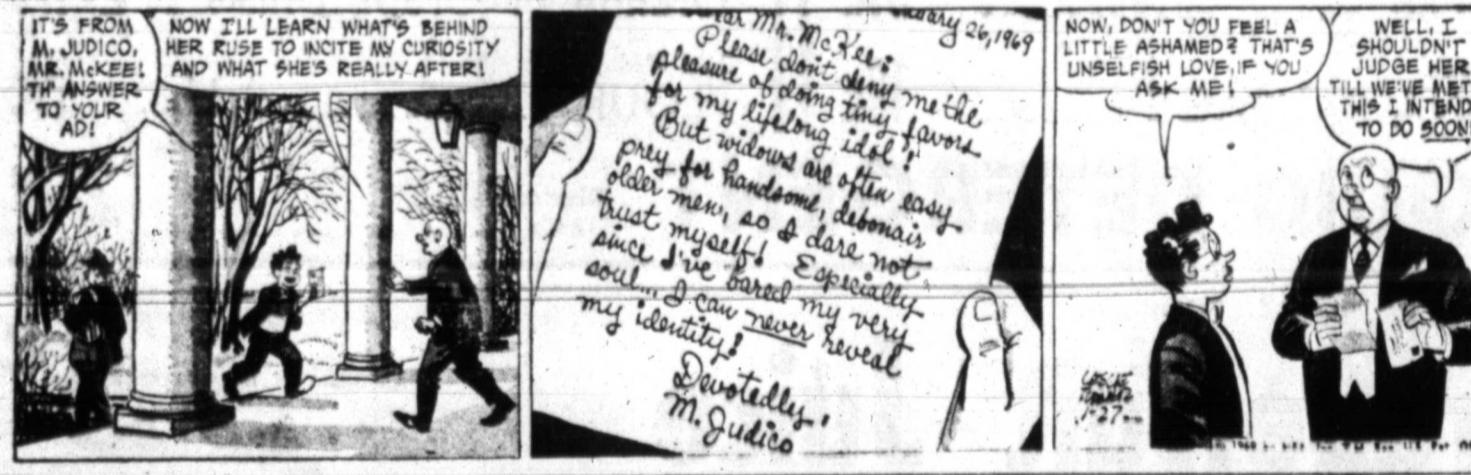 IT'S FROM
M. JUDICO,
MR. McKEE!
TH' ANSWER
TO YOUR
AD!
NOW I'LL LEARN WHAT'S BEHIND
HER RUSE TO INCITE MY CURIOSITY
AND WHAT SHE'S REALLY AFTER!
26, 1969
Mr. McKee:
Please don't deny me the
pleasure of doing tiny favors
for my lifelong idol!
But widows are often easy
prey for handsome, debonair
older men, so I dare not
trust myself! Especially
since I've bared my very
soul... I can never reveal
my identity!
Devotedly,
M. Judico
NOW, DON'T YOU FEEL A
LITTLE ASHAMED? THAT'S
UNSELFISH LOVE, IF YOU
ASK ME!
WELL, I
SHOULDN'T
JUDGE HER
TILL WE'VE MET
THIS I INTEND
TO DO SOON
1-27